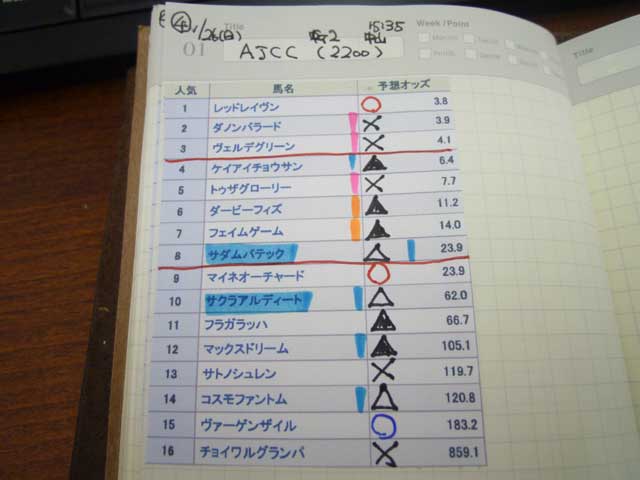 ④ 1/26(日) 中山 15:35
Title
Week / Point
01 AJCC (2200)
Title
人気 馬名 予想オッズ
1 レッドレイヴン ○ 3.8
2 ダノンバラード × 3.9
3 ヴェルデグリーン × 4.1
4 ケイアイチョウサン ▲ 6.4
5 トゥザグローリー × 7.7
6 ダービーフィズ ▲ 11.2
7 フェイムゲーム ▲ 14.0
8 サダムパテック △ 23.9
9 マイネオーチャード ○ 23.9
10 サクラアルディート △ 62.0
11 フラガラッハ ▲ 66.7
12 マックスドリーム ▲ 105.1
13 サトノシュレン × 119.7
14 コスモファントム △ 120.8
15 ヴァーゲンザイル ○ 183.2
16 チョイワルグランパ × 859.1